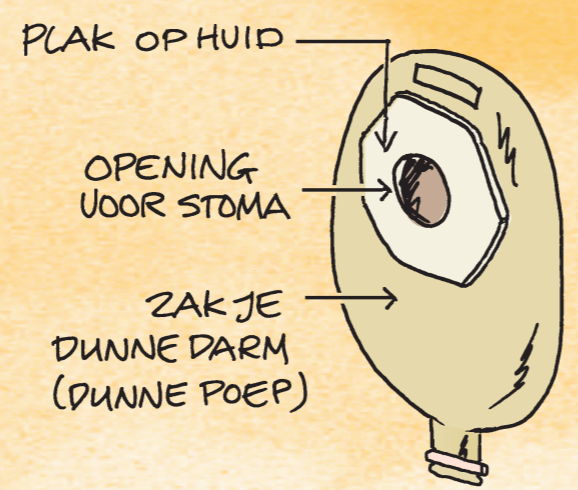 PLAK OP HUID
OPENING
VOOR STOMA
ZAKJE
DUNNE DARM
(DUNNE POEP)